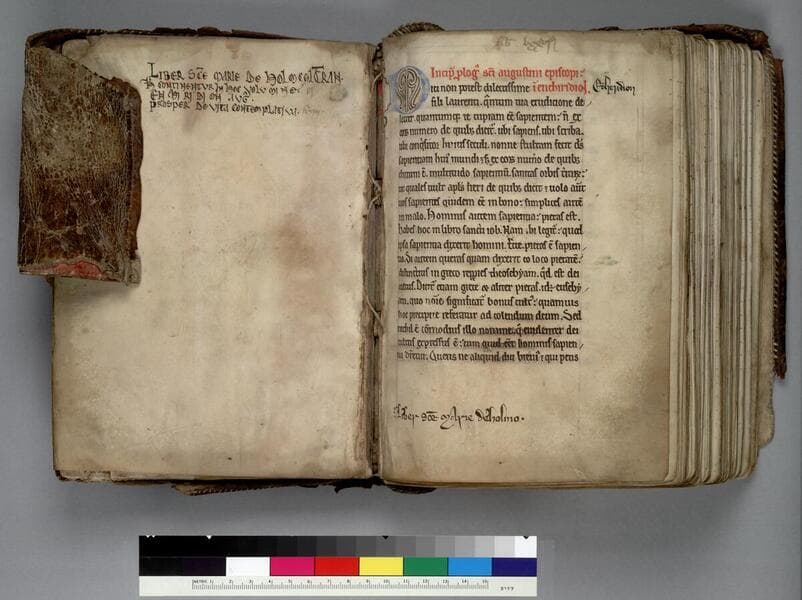 LIBER SCE MARIE DE HOLMCOLTRAN.
IN CONTINENTVR IN HOC VOLVMINE.
ENCHIRIDION AVG.
PROSPER DE VITA CONTEMPLATIVA.
Incip̄ plogˀ sc̄i augustini episcopi
ici non potest dilectissime i enchiridiol. Echeridion
fili laurenti. q̄ntum tua eruditione de-
lecter. quantumqȝ te cupiam ēē sapientem: n̄ ex
eoꝝ numero de quibȝ dicit̄. ubi sapiens. ubi scriba.
ubi conq̄sitor huius seculi. nonne stultam fecit dˢ
sapientiam huiˀ mundi: sȝ ex eoꝝ num̄o de quibȝ
scriptum ē. multitudo sapientiū. sanitas orbis
et quales uult apl̄s fieri de quibȝ dicit: uolo aūt
uos sapientes quidem ēē in bono: simplices autem
in malo. Hominis autem sapientia: pietas est.
habes hoc in libro sancti iob. Nam ibi legit̄: quod
ipsa sapientia dixerit homini. Ecce. pietas ē sapien-
tia. Si autem queras quam dixerit eo loco pietatē:
distinctius in greco reppies theosebyam. qd̄ est dei
cultus. Dicit̄ enim grece et aliter pietas. id: euseby-
am. quo noīe significat̄ bonus cultˀ: quamuis
hoc precipue referatur ad colendum deum. Sed
nichil ē comodius illo nomine. q̄ euidenter dei
cultus expressus ē: cum quid eēt hominis sapien-
tia diceret̄. Queris ne aliquid dici breuiˀ: qui petis
Liber sc̄e Marie de holmo.